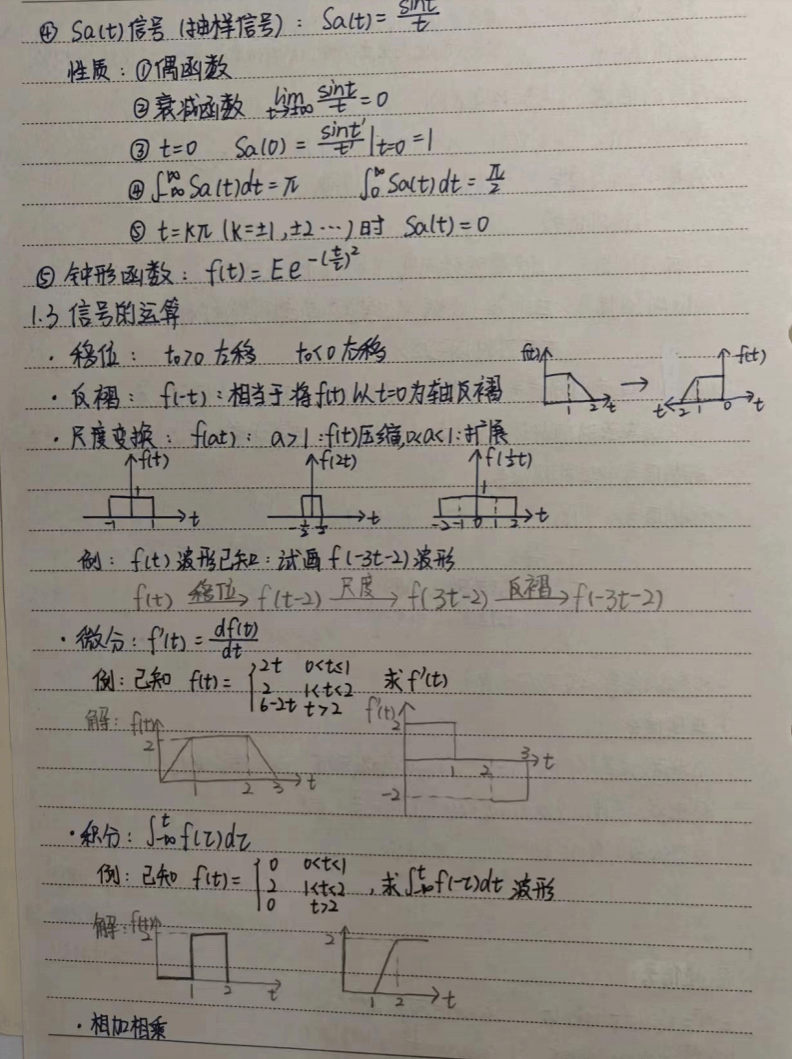 ④ Sa(t)信号(抽样信号): Sa(t)=sint/t
性质: ①偶函数
②衰减函数 lim t→±∞ sint/t=0
③ t=0 Sa(0)=sint'/t'|t=0=1
④ ∫-∞^∞ Sa(t)dt=π ∫0^∞ Sa(t)dt=π/2
⑤ t=kπ(k=±1,±2…)时 Sa(t)=0
⑤ 钟形函数: f(t)=Ee^-(t/τ)²
1.3 信号的运算
· 移位: t₀>0 右移 t₀<0 左移
f(t) 1 2 t → f(t) t 2 1 0 t
· 反褶: f(-t):相当于将f(t)以t=0为轴反褶
· 尺度变换: f(at): a>1:f(t)压缩,0<a<1:扩展
f(t) f(2t) f(½t)
1 1
-1 1 t -½ ½ t -2 -1 0 1 2 t
例: f(t)波形已知:试画f(-3t-2)波形
f(t) 移位→ f(t-2) 尺度→ f(3t-2) 反褶→ f(-3t-2)
· 微分: f'(t)=df(t)/dt
例:已知 f(t)= { 2t 0<t≤1
2 1<t<2 求f'(t)
6-2t t>2
解: f(t) 2 1 2 3 t
f'(t) 2 1 2 3 t -2
· 积分: ∫-∞^t f(τ)dτ
例: 已知 f(t)= { 0 0<t<1
2 1<t<2 ,求∫-∞^t f(-τ)dt 波形
0 t>2
解: f(t) 2 1 2 t
2 1 2 t
· 相加相乘